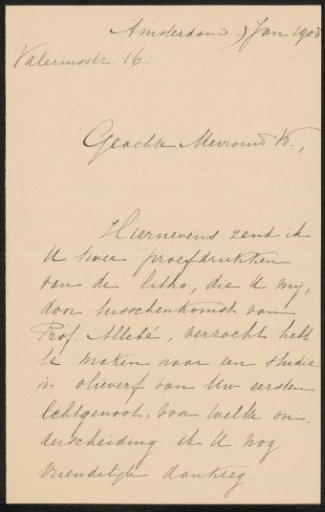 Amsterdam 9 Jan 1908
Valeriusstr. 16.
Geachte Mevrouw W.,
Hiernevens zend ik
U twee proefdrukken
van de litho, die U mij,
door tusschenkomst van
Prof. Allebé, verzocht hebt
te maken naar een studie
in olieverf van Uw eersten
Echtgenoot, voor welke on-
derscheiding ik U nog
vriendelijk dankzeg